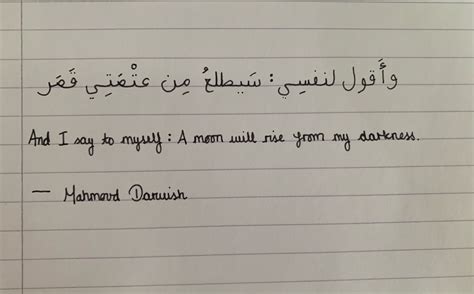 وأَقول لنفسِي: سَيطلعُ مِن عتْمَتِي قَمَر
And I say to myself : A moon will rise from my darkness.
— Mahmoud Darwish